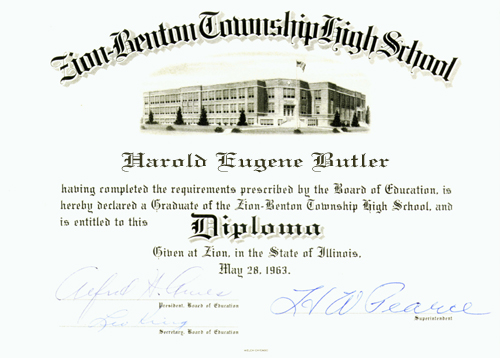 Zion-Benton Township High School
Harold Eugene Butler
having completed the requirements prescribed by the Board of Education, is
hereby declared a Graduate of the Zion-Benton Township High School, and
is entitled to this Diploma
Given at Zion, in the State of Illinois,
May 28, 1963.
Alfred H. Ames
President, Board of Education
H W Pearce
Superintendent
Secretary, Board of Education